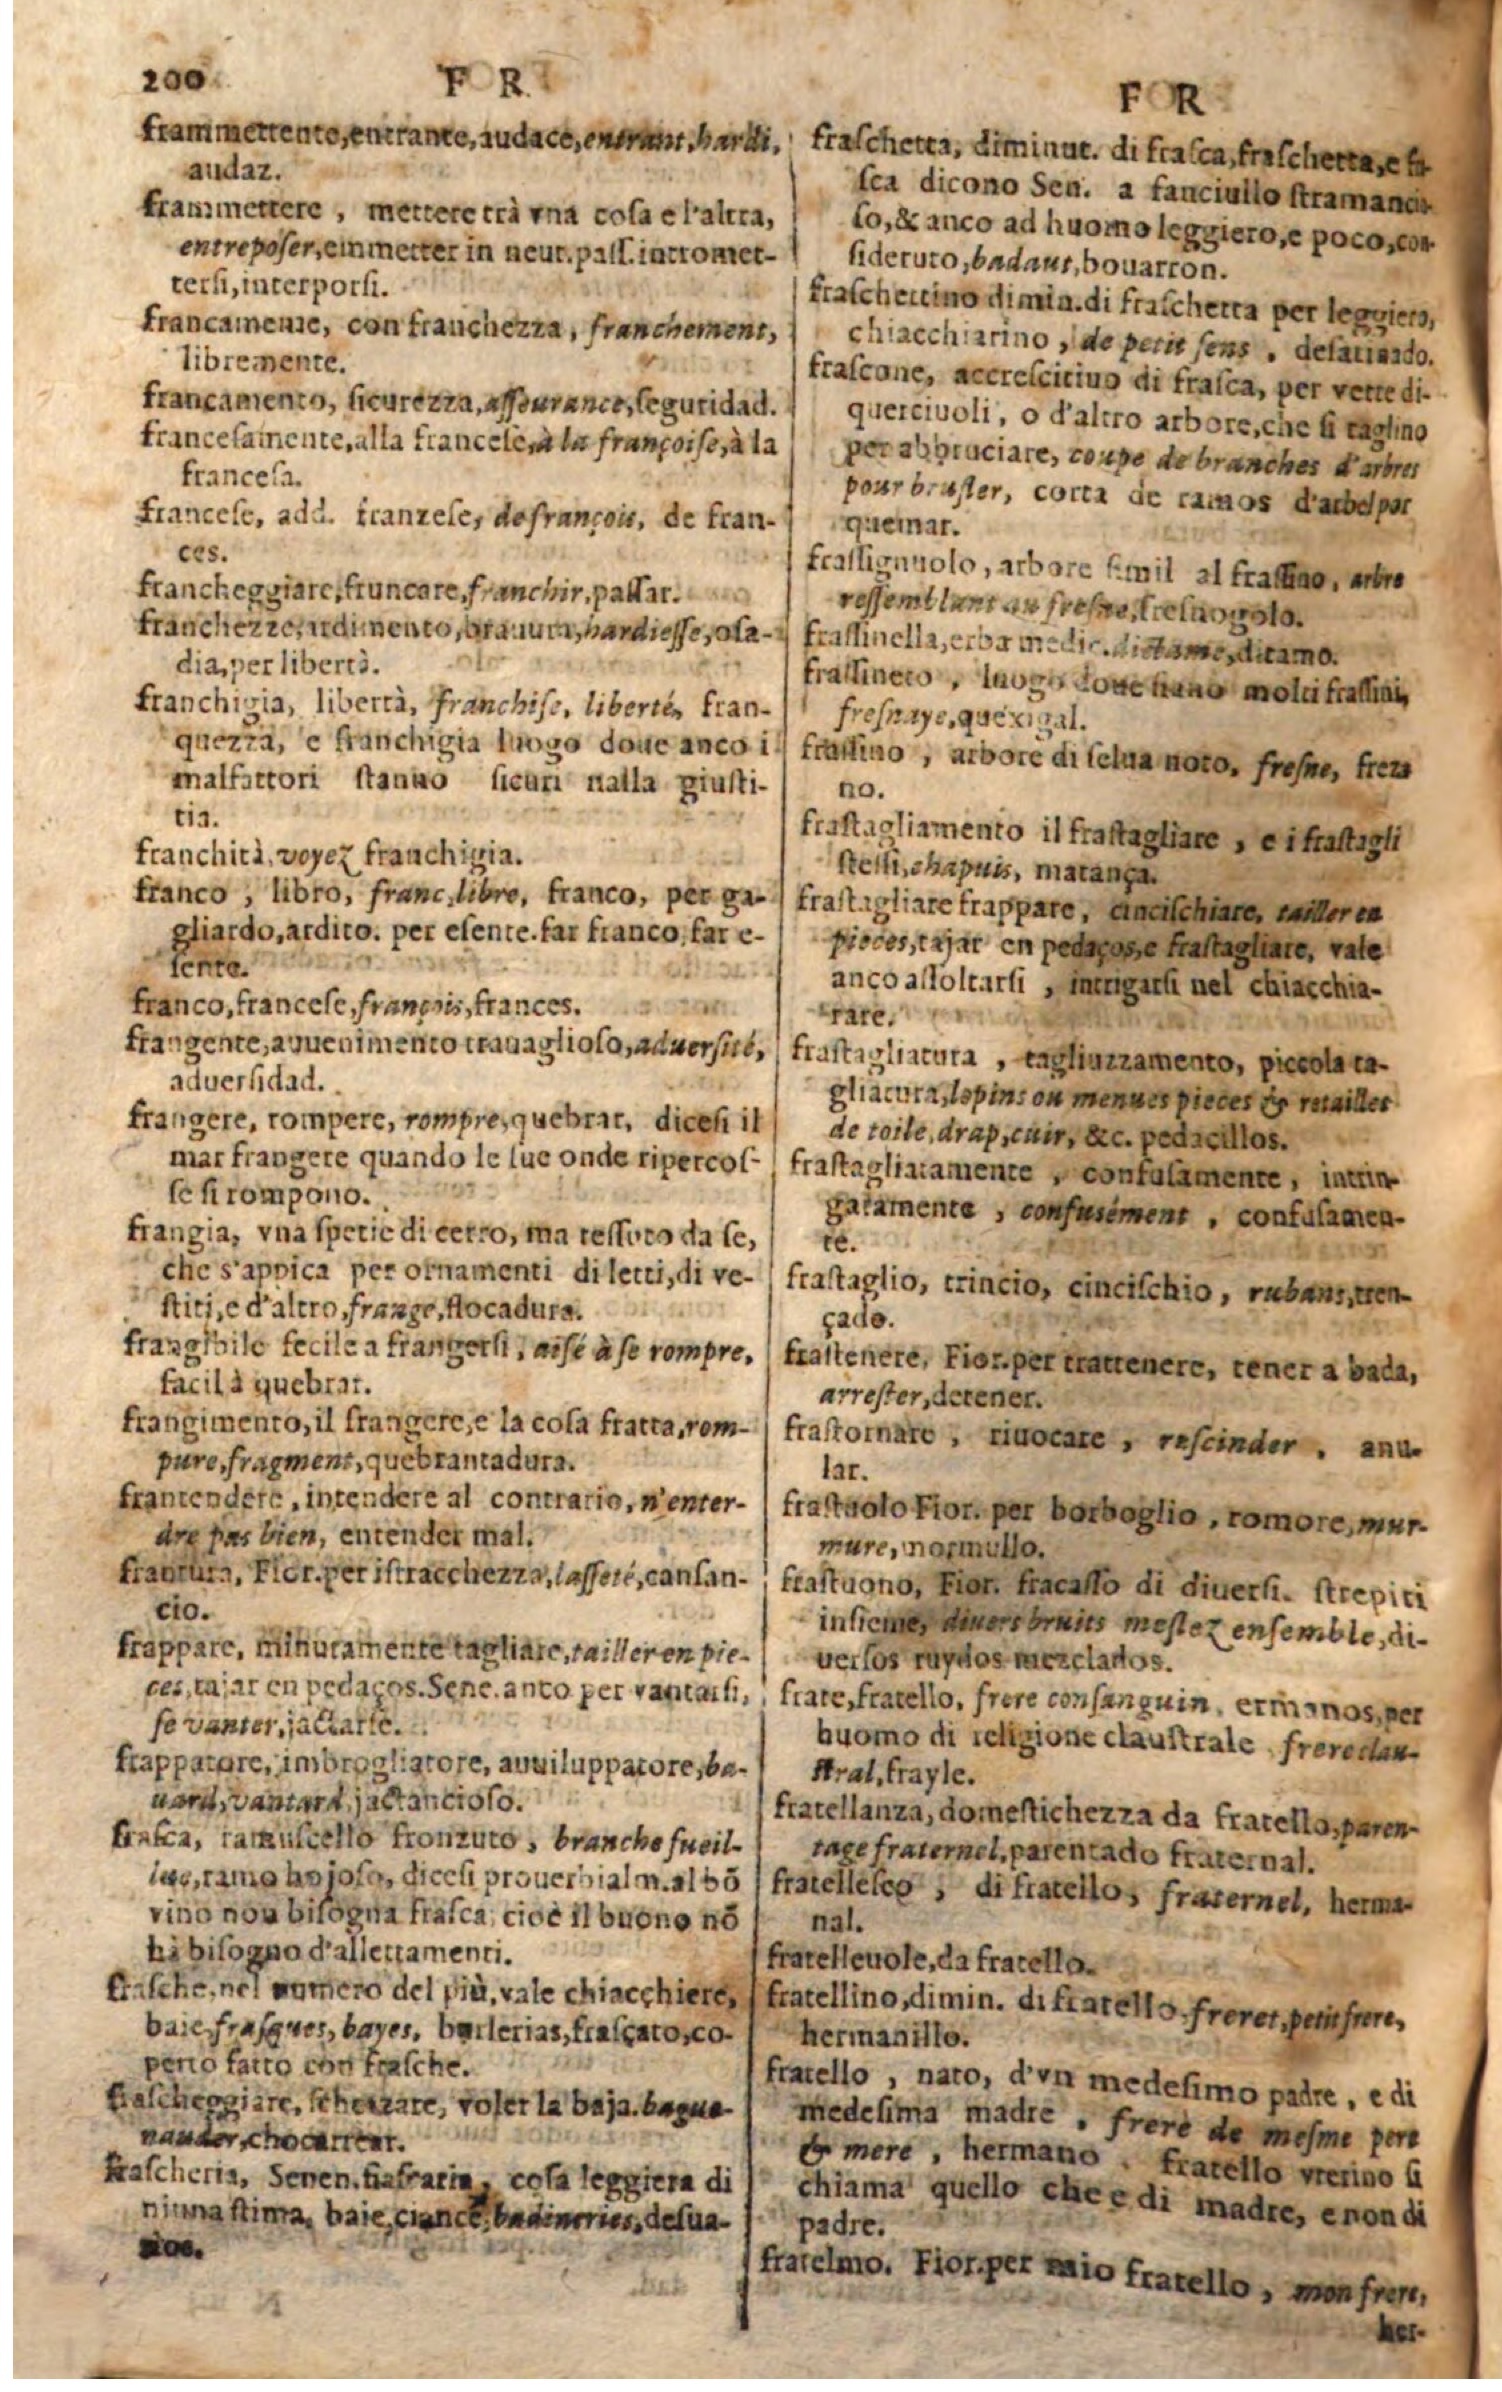 200 F R
frammettente, entrante, audace, entrant, hardi,
audaz.
frammettere, mettere trà vna cosa e l'altra,
entreposer, emmetter in neut. pass. intromet-
tersi, interporsi.
francamente, con franchezza, franchement,
libremente.
francamento, sicurezza, asseurance, seguridad.
francesamente, alla francese, à la françoise, à la
francesa.
francese, add. franzese, de françois, de fran-
ces.
francheggiare, francare, franchir, passar.
franchezze, ardimento, brauura, hardiesse, osa-
dia, per libertà.
franchigia, libertà, franchise, liberté, fran-
quezza, e franchigia luogo doue anco i
malfattori stanno sicuri nalla giusti-
tia.
franchità, voyez franchigia.
franco, libro, franc, libre, franco, per ga-
gliardo, ardito. per esente. far franco, far e-
sente.
franco, francese, françois, frances.
frangente, auuenimento trauaglioso, aduersité,
aduersidad.
frangere, rompere, rompre, quebrar, dicesi il
mar frangere quando le sue onde ripercos-
se si rompono.
frangia, vna spetie di cerro, ma tessuto da se,
che s'appica per ornamenti di letti, di ve-
stiti, e d'altro, frange, flocadura.
frangibile fecile a frangersi, aisé à se rompre,
facil à quebrar.
frangimento, il frangere, e la cosa fratta, rom-
pure, fragment, quebrantadura.
frantendere, intendere al contrario, n'enten-
dre pas bien, entender mal.
frantura, Fior. per istracchezza, lasseté, cansan-
cio.
frappare, minutamente tagliare, tailler en pie-
ces, tajar en pedaços. Sene. anco per vantarsi,
se vanter, jactarse.
frappatore, imbrogliatore, auuiluppatore, ba-
uard, vantard, jactancioso.
frasca, ramuscello fronzuto, branche fueil-
lue, ramo hojoso, dicesi prouerbialm. al bõ
vino non bisogna frasca, cioè il buono nõ
hà bisogno d'allettamenti.
frasche, nel numero del più, vale chiacchiere,
baie, frasques, bayes, burlerias, frasçato, co-
perto fatto con frasche.
frascheggiare, scherzare, voler la baja. bague-
nauder, chocarrear.
frascheria, Senen. fiafraria, cosa leggiera di
niuna stima, baie, ciance, badineries, desua-
rios.
F R
fraschetta, diminut. di frasca, fraschetta, e fa-
sca dicono Sen. a fanciullo stramancia-
so, & anco ad huomo leggiero, e poco, con-
sideruto, badaut, bouarron.
fraschettino dimin. di fraschetta per leggiero,
chiacchiarino, de petit sens, desatinado.
frascone, accrescitiuo di frasca, per vette di-
querciuoli, o d'altro arbore, che si taglino
per abbruciare, coupe de branches d'arbres
pour brusler, corta de ramos d'arbol por
quemar.
frassignuolo, arbore simil al frassino, arbre
ressemblant au fresne, fresnogolo.
frassinella, erba medic. dictame, ditamo.
frassineto, luogo doue siano molti frassini,
fresnaye, quexigal.
frassino, arbore di selua noto, fresne, frez
no.
frastagliamento il frastagliare, e i frastagli
stessi, chapuis, matança.
frastagliare frappare, cincischiare, tailler en
pieces, tajar en pedaços, e frastagliare, vale
anco assoltarsi, intrigarsi nel chiacchia-
rare.
frastagliatura, tagliuzzamento, piccola ta-
gliatura, lopins ou menues pieces & retailles
de toile, drap, cuir, &c. pedacillos.
frastagliatamente, confusamente, intrin-
gatamente, confusément, confusamen-
te.
frastaglio, trincio, cincischio, rubans, tren-
çado.
frastenere, Fior. per trattenere, tener a bada,
arrester, detener.
frastornare, riuocare, rescinder, anu-
lar.
frastuolo Fior. per borboglio, romore, mur-
mure, mormullo.
frastuono, Fior. fracasso di diuersi. strepiti
insieme, diuers bruits meslez ensemble, di-
uersos ruydos mezclados.
frate, fratello, frere consanguin, ermanos, per
huomo di religione claustrale, frere clau-
stral, frayle.
fratellanza, domestichezza da fratello, paren-
tage fraternel, parentado fraternal.
fratellesco, di fratello, fraternel, herma-
nal.
fratelleuole, da fratello.
fratellino, dimin. di fratello, freret, petit frere,
hermanillo.
fratello, nato, d'vn medesimo padre, e di
medesima madre, frere de mesme pere
& mere, hermano, fratello vterino si
chiama quello che e di madre, e non di
padre.
fratelmo. Fior. per mio fratello, mon frere,
her-